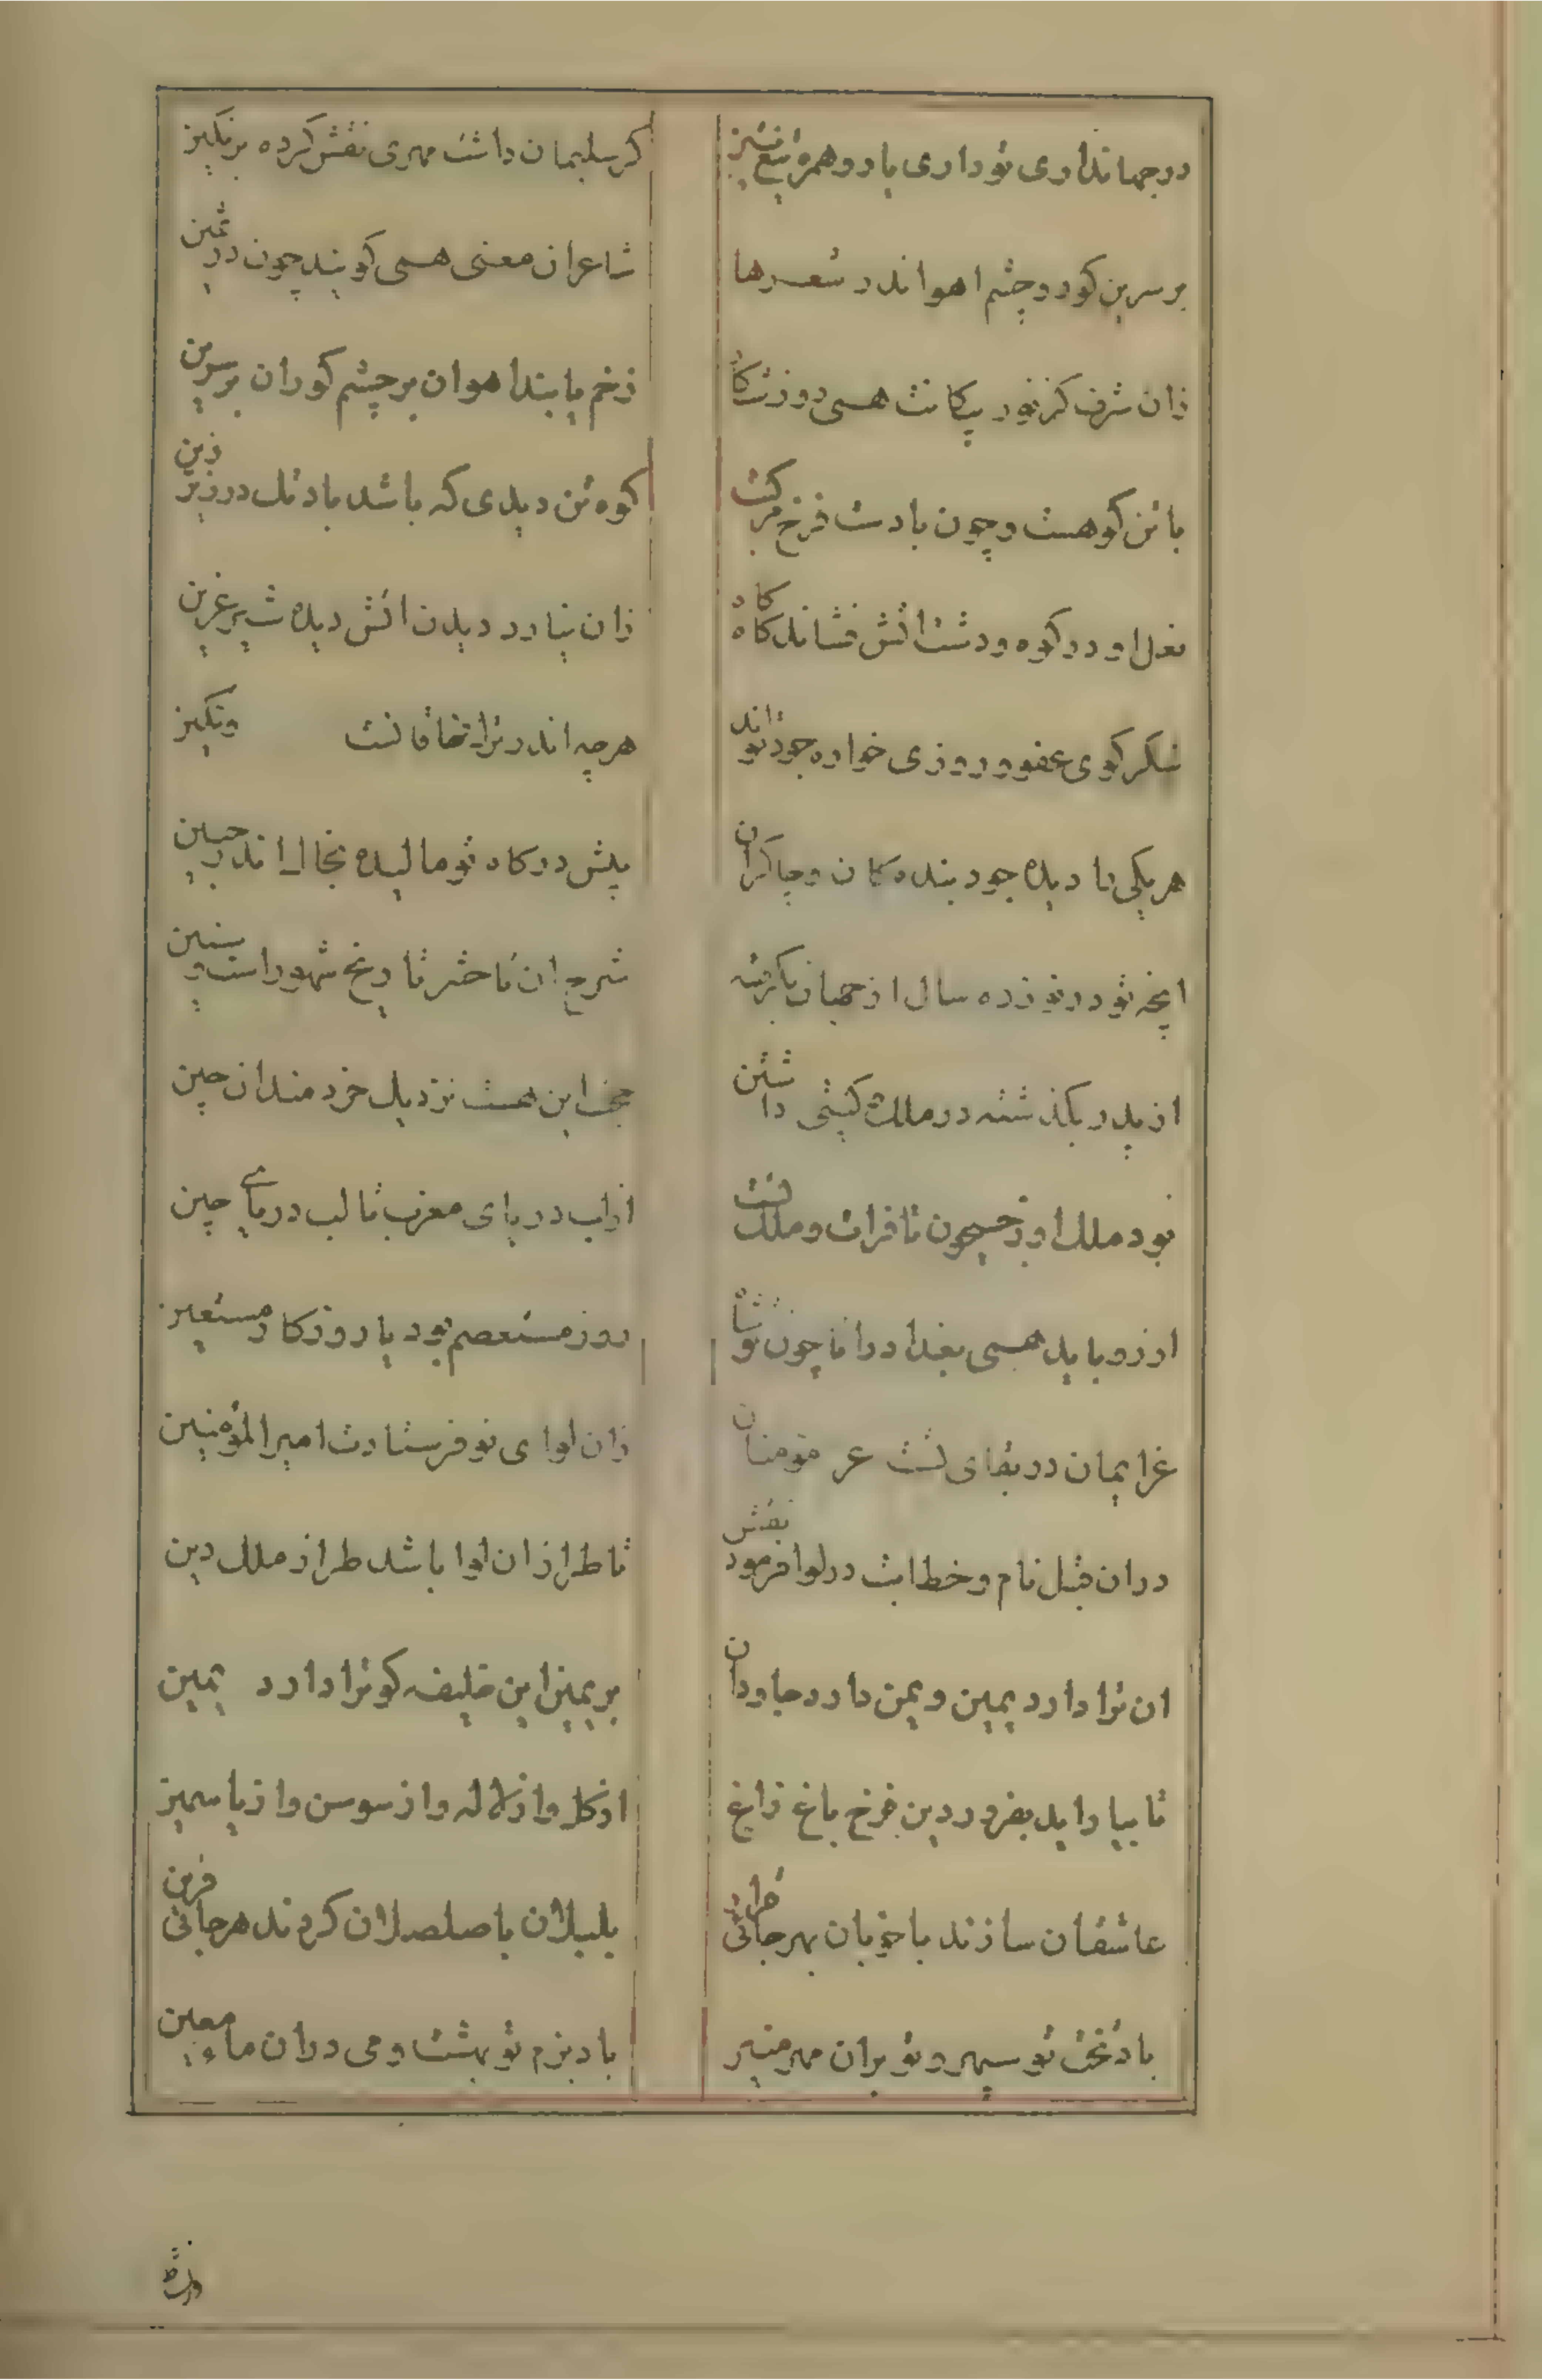 در جهانداری تو داری یاد و همره تیغ تیز
کر سلیمان داشت مهری نقش کرده بر نکین
بر سرین کور و چشم اهو اندر شعرها
شاعران معنی همی کویند چون در ثمین
زان شرف کز نور پیکانت همی دوزد شکار
زخم یابند اهوان بر چشم کوران بر سرین
با تن کوهست و چون بادست فرخ مرکبت
کوه تن دیدی که باشد باد تک در زیر زین
نعل او در کوه و دشت اتش فشاند کاه کاه
زان نیارد دیدن اتش دیده شیر عرین
شکر کوی عفو و روزی خواره جود تواند
هر چه اندر ترا نکین
هر یکی نا دیده جود بنده کان و چاکران
پیش درکاه تو مالیده بخاک اندر جبین
انچه تو در نوزده سال از جهان بکرفته
شرح ان تا حشر تاریخ شهور است و سنین
از پدر بکذشته در ملک کیتی داشتن
حجت این هست نزدیک خردمندان چین
بود ملک او ز جیحون تا فرات و ملک تست
از لب دریای مغرب تا لب دریای چین
ارزو باید همی بغداد را تا چون تو شاه
روز مستعصم بود یا روزکار مستعین
عز ایمان در بقای تست عز مومنان
زان لوای نو فرستادت امیر المؤمنین
در ان قبل نام و خطابت در لوا فرمود نقش
تا طراز ان لوا باشد طراز ملک دین
ان ترا دارد یمین و یمن دارد جاودان
بر یمین این خلیفه کو ترا دارد یمین
تا بیاراید بفروردین فرخ باغ زاغ
از کل و از لاله و از سوسن و از یاسمین
عاشقان سازند با خوبان بهر جائی قرار
بلبلان با صلصلان کردند هر جائی قرین
باد تخت تو سپهر و تو بران مهر منیر
باد بزم تو بهشت و می در ان ماء معین